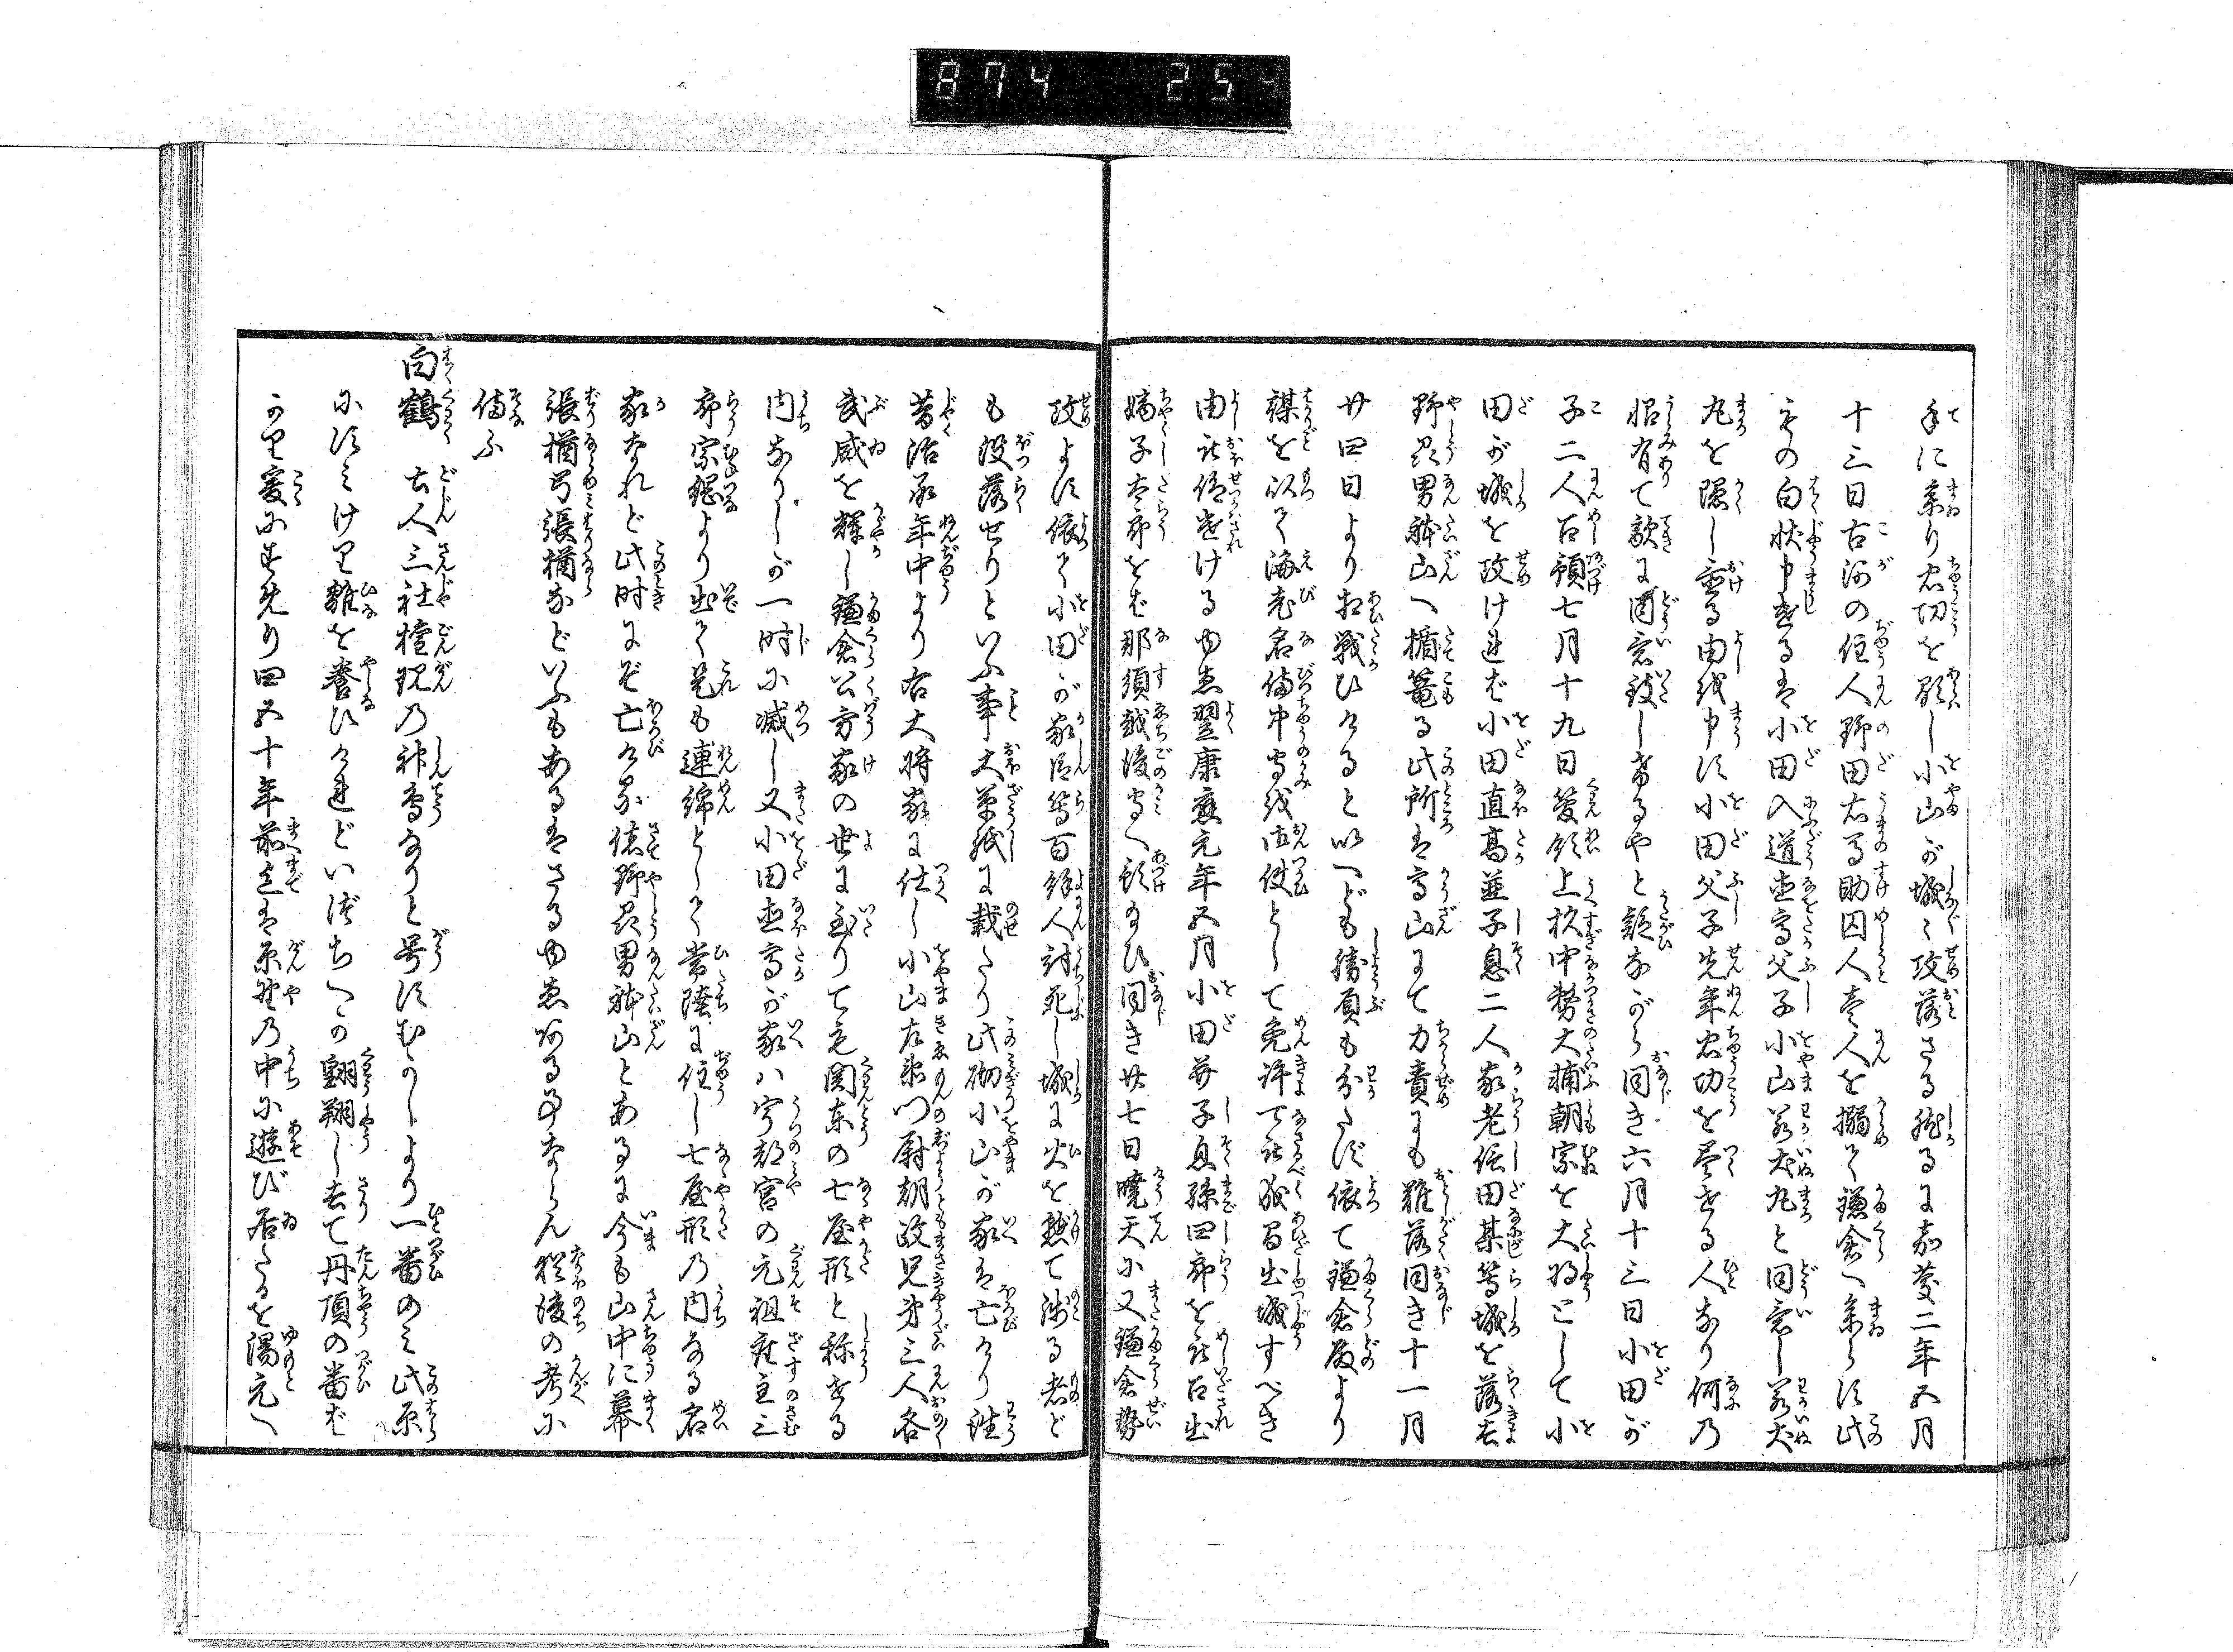 874 254
手に参り忠切を顕し小山が城を攻落さる然るに嘉慶二年五月
十三日古河の住人野田右馬助囚人壱人を搦て鎌倉へ参らす此
ものゝ白状申けるは小田入道直高父子小山若犬丸と同意し若犬
丸を隠し置る由を申す小田父子先年忠功を尽せる人なり何乃
恨有て敵に同意致し希るやと疑ながら同き六月十三日小田が
子二人召預七月十九日管領上杉中務大輔朝宗を大将として小
田が城を攻け連ば小田直高並子息二人家老信田某等城を落去
野州男躰山へ楯篭る此所は高山にて力責にも難落同き十一月
廿四日より相戦ひけると以へども勝負も分たず依て鎌倉殿より
謀を以て海老名備中守を御使として免許可被成旨出城すべき
由被仰遣けるゆゑ翌康應元年五月小田并子息孫四郎を被召出
嫡子太郎をば那須越後守へ預給ひ同き廿七日暁天に又鎌倉勢
攻よす依て小田が家臣等百餘人討死し城に火を懸て残る者ど
も没落せりといふ事大草紙に載たり此砌小山が家は亡けり往
昔治承年中より右大将家に仕し小山左衛門尉朝政兄弟三人各
武威を輝し鎌倉公方家の世に至りても関東の七屋形と称せる
内なりしが一時に滅し又小田直高が家ハ宇都宮の元祖座主三
郎宗綱より出て是も連綿として常陸に住し七屋形乃内なる名
家なれど此時にぞ亡ける扨野州男躰山とあるに今も山中に幕
張楢弓張楢などいふもあるはさるゆゑ阿る事ならん猶後の考に
備ふ
白鶴 土人三社権現乃神鳥なりと号すむかしより一番のミ此原
にすミけり雛を養ひけれどいづちへか翺翔し去て丹頂の番ば
かり爰に来れり四五十年前迄は原野乃中に遊び居たるを湯元へ